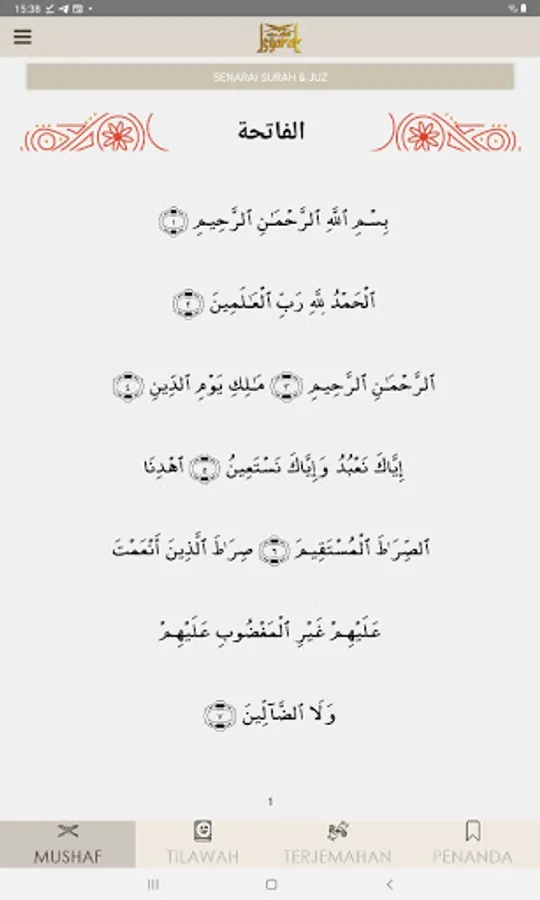 15:38
SENARAI SURAH & JUZ
الفاتحة
بِسْمِ ٱللَّهِ ٱلرَّحْمَـٰنِ ٱلرَّحِيمِ ١
ٱلْحَمْدُ لِلَّهِ رَبِّ ٱلْعَـٰلَمِينَ ٢
ٱلرَّحْمَـٰنِ ٱلرَّحِيمِ ٣ مَـٰلِكِ يَوْمِ ٱلدِّينِ ٤
إِيَّاكَ نَعْبُدُ وَإِيَّاكَ نَسْتَعِينُ ٥ ٱهْدِنَا
ٱلصِّرَٰطَ ٱلْمُسْتَقِيمَ ٦ صِرَٰطَ ٱلَّذِينَ أَنْعَمْتَ
عَلَيْهِمْ غَيْرِ ٱلْمَغْضُوبِ عَلَيْهِمْ
وَلَا ٱلضَّآلِّينَ ٧
1
MUSHAF
TILAWAH
TERJEMAHAN
PENANDA